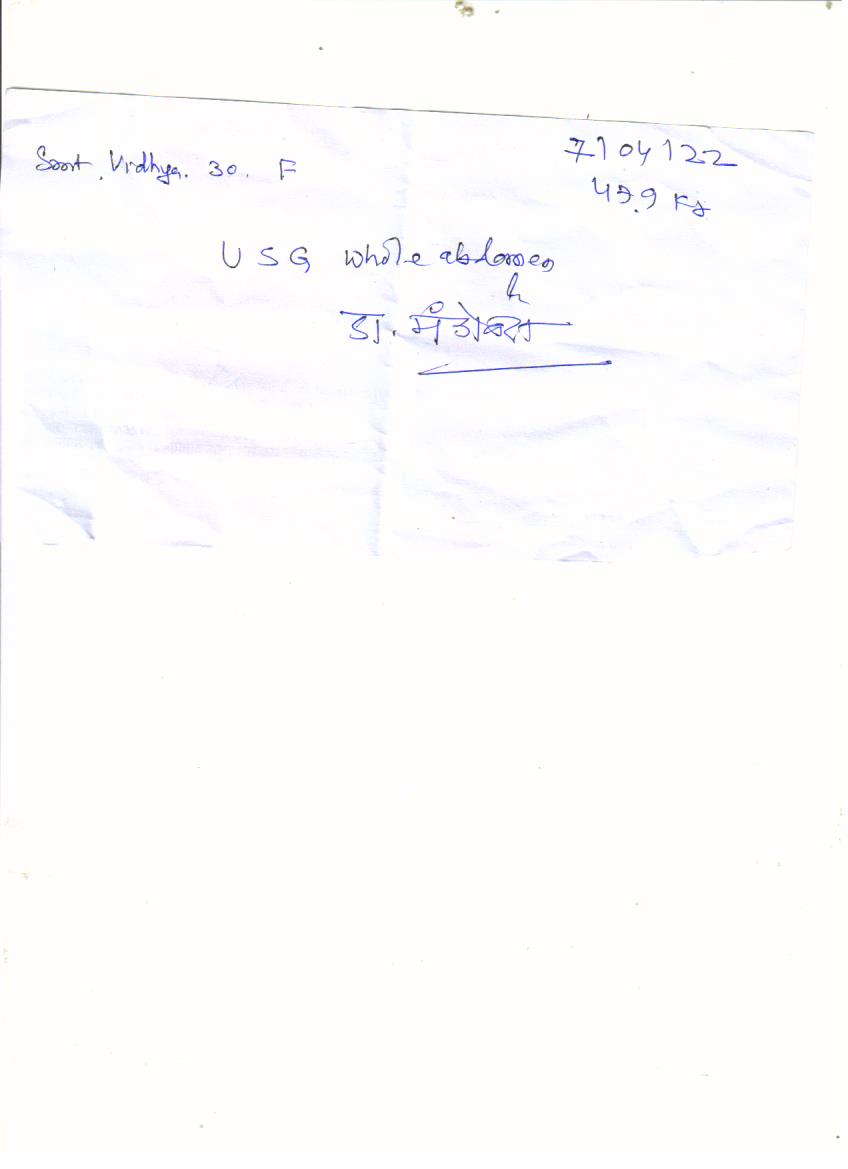 Smt. Vidhya. 30. F
7/04/22
47.9 Kg
USG whole abdomen
डा. मंडोवरा